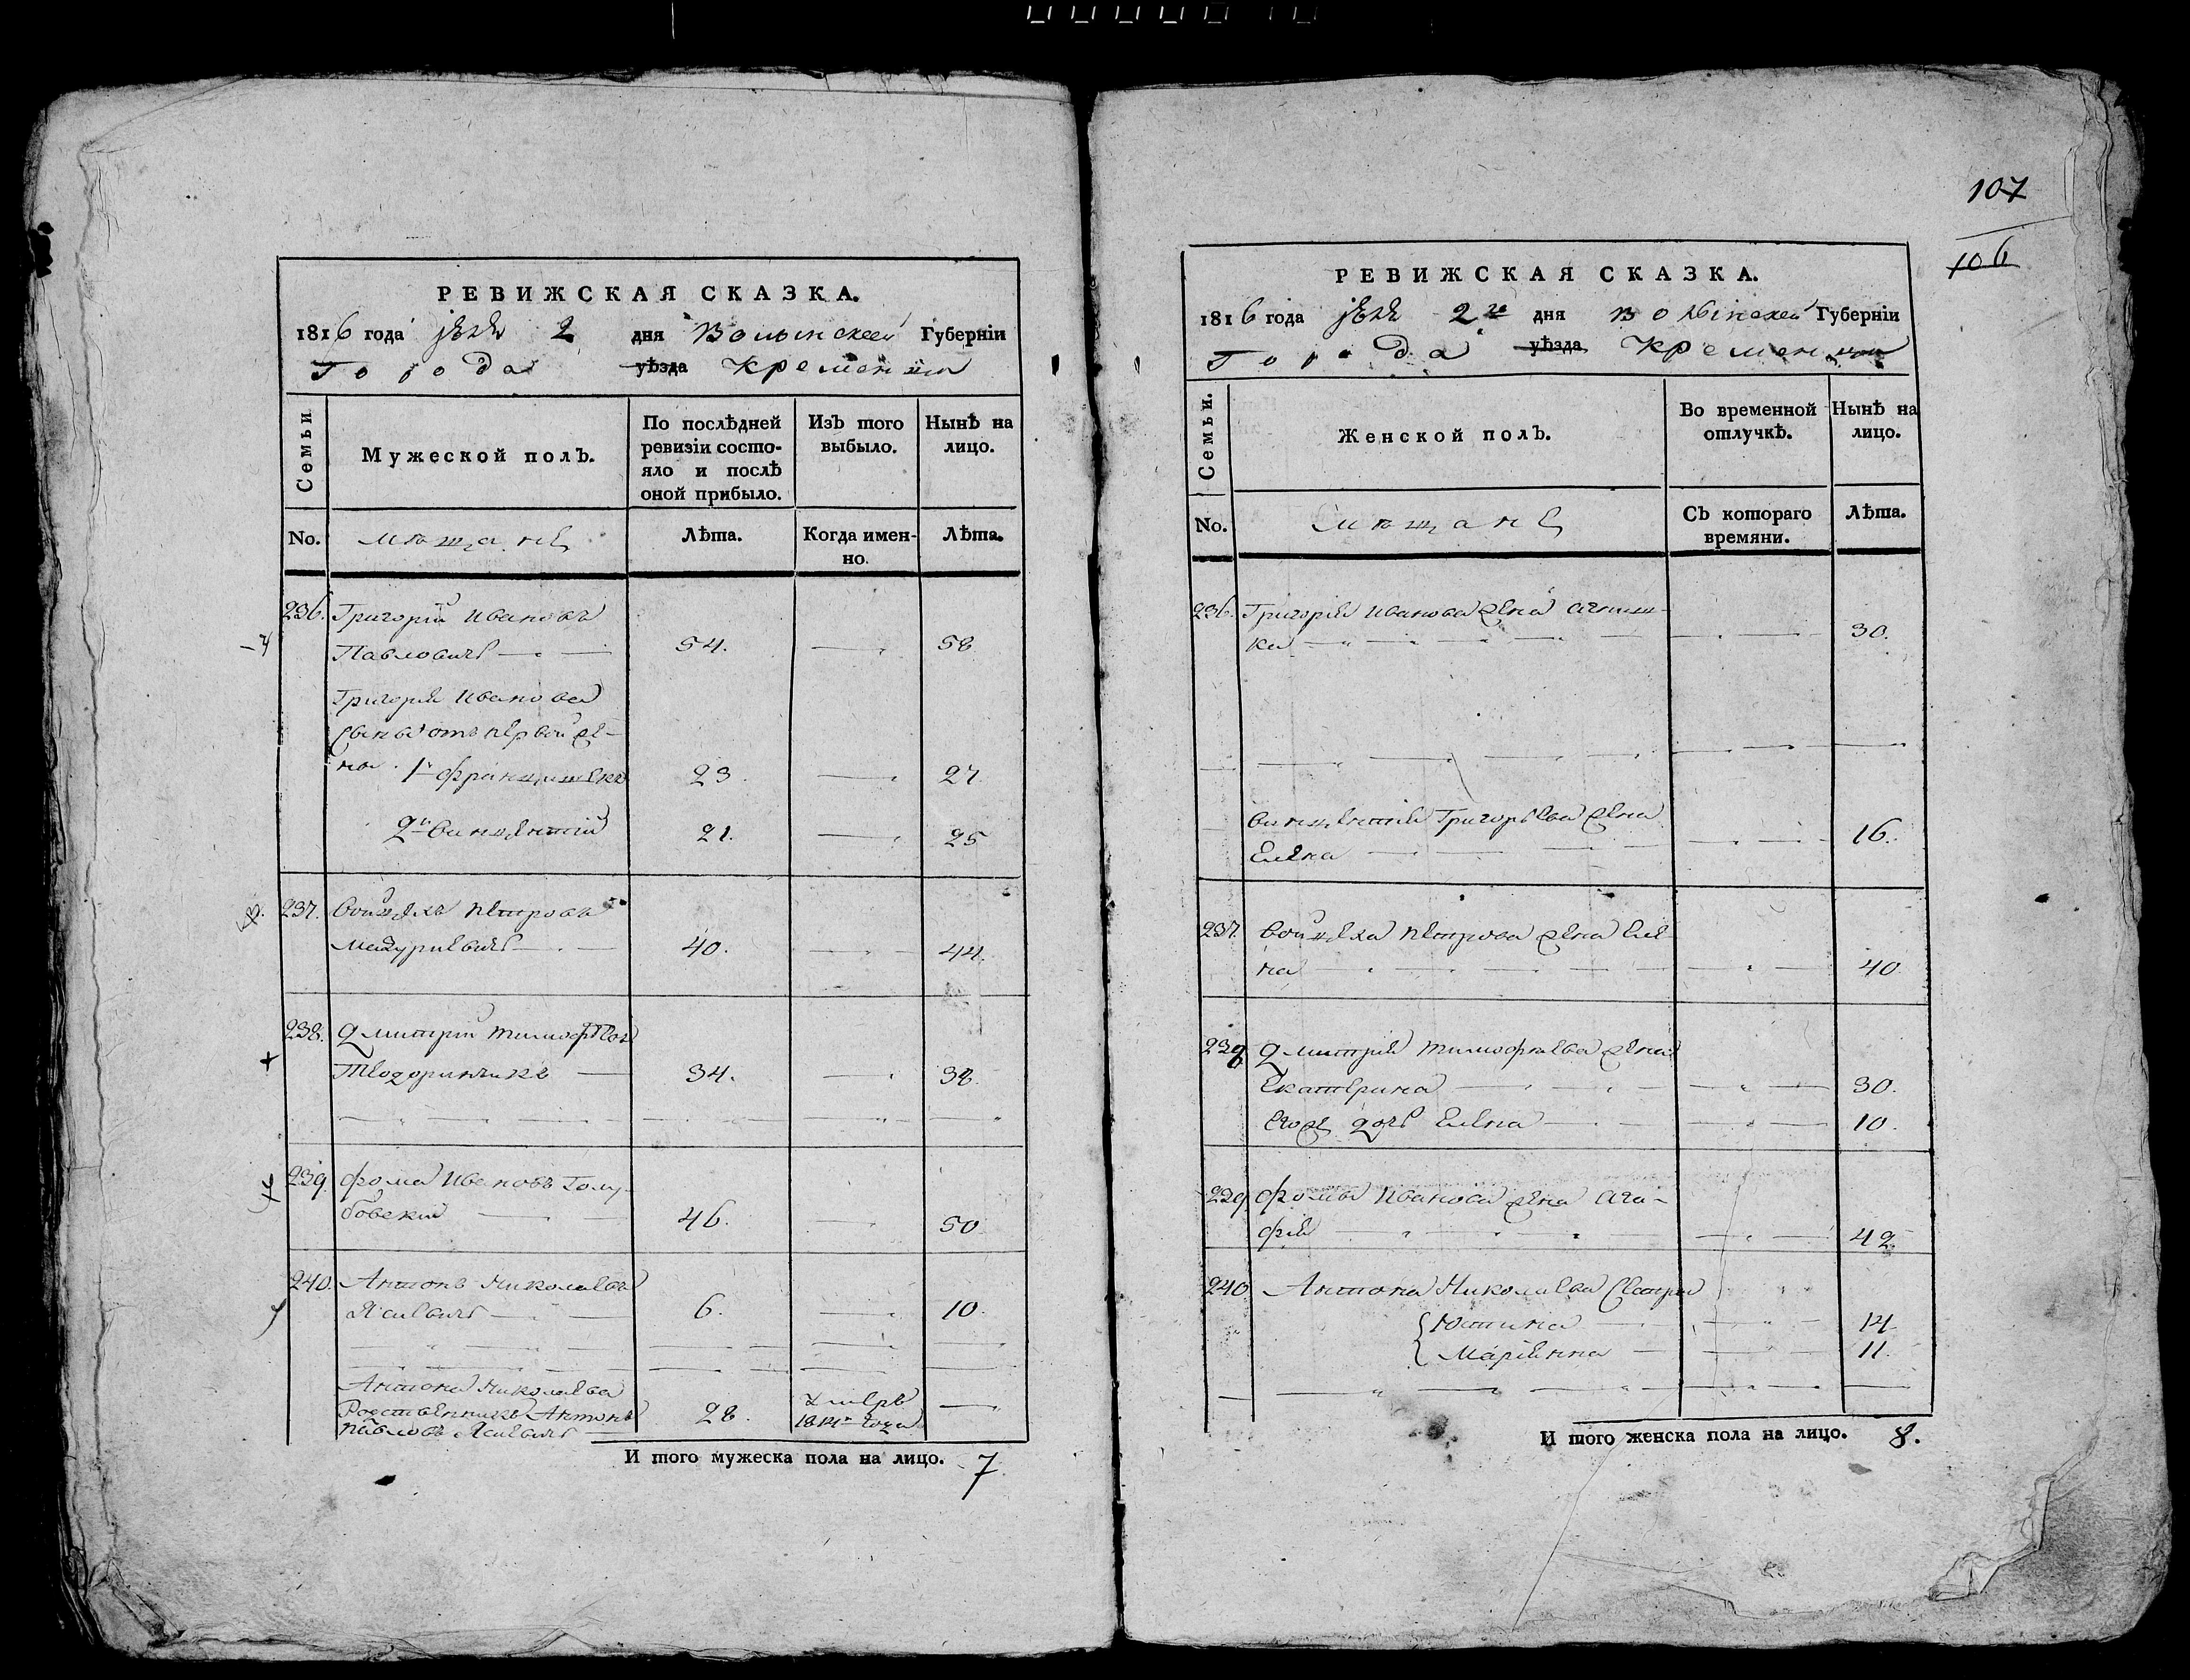 РЕВИЖСКАЯ СКАЗКА.
1816 года 2 дня Волынской Губерніи
Города уѣзда Кременца
Семьи
Мужеской полъ.
По послѣдней ревизіи состояло и послѣ оной прибыло.
Изъ того выбыло.
Нынѣ на лицо.
No.
мѣщане
Лѣта.
Когда именно.
Лѣта.
236. Григорій Ивановъ
Павловичь 54. 58
Григорія Иванова
сыны отъ первой же-
ны. 1й Францишекъ 23 27
2й Винцентій 21. 25
237. Войцехъ Петровъ
Мазуркевичь 40. 44.
238. Дмитрій Тимофѣевъ
Теодоринчикъ 34. 38.
239. Фома Ивановъ Голу-
бовскій 46. 50
240. Антонъ Николаевъ
Ясевичь 6. 10.
Антона Николаева
Родственникъ Антонъ 28. умерь
Павловъ Ясевичь 1814го года
И того мужеска пола на лицо. 7
107
106
РЕВИЖСКАЯ СКАЗКА.
1816 года 2го дня Волынской Губерніи
Города уѣзда Кременца
Семьи.
Женской полъ.
Во временной отлучкѣ.
Нынѣ на лицо.
No.
мѣщане
Съ котораго времяни.
Лѣта.
236. Григорія Иванова жена Агниш-
ка 30.
Винцентія Григорьева жена
Елена 16.
237. Войцеха Петрова жена Еле-
на 40
238 Дмитрія Тимофѣева жена
Екатерина 30.
Егожъ дочь Елена 10.
239 Фомы Иванова жена Ага-
фія 42
240 Антона Николаева сестры
Юстина 14
Маріянна 11.
И того женска пола на лицо. 8.